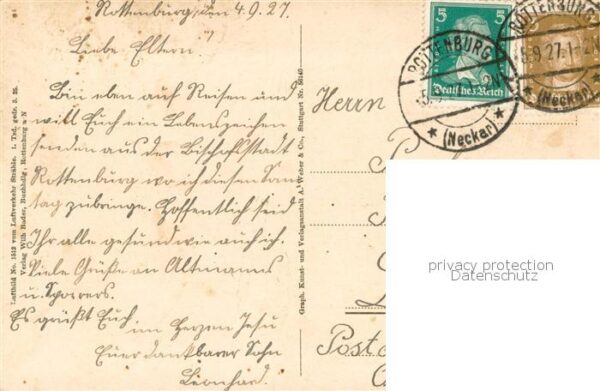 Rottenburg, den 4.9.27.
Liebe Eltern!
Bin eben auf Reisen und
will Euch ein Lebenszeichen
senden aus der Bischofsstadt
Rottenburg wo ich diesen Sonn
tag zubringe. Hoffentlich seid
Ihr alle gesund wie auch ich.
Viele Grüße an Altmanns
u.
Es grüßt Euch
im Herzen Jesu
Euer dankbarer Sohn
Leonhard.
Luftbild No. 1513 vom Luftverkehr Strähle.
Verlag Wilh. Bader, Buchhdlg., Rottenburg a. N
Graph. Kunst- und Verlagsanstalt A. Weber & Co., Stuttgart
Herrn
Post
5 5
Deutsches Reich
ROTTENBURG
(Neckar)
ROTTENBURG
5.9.27.1-2N
(Neckar)
privacy protection
Datenschutz